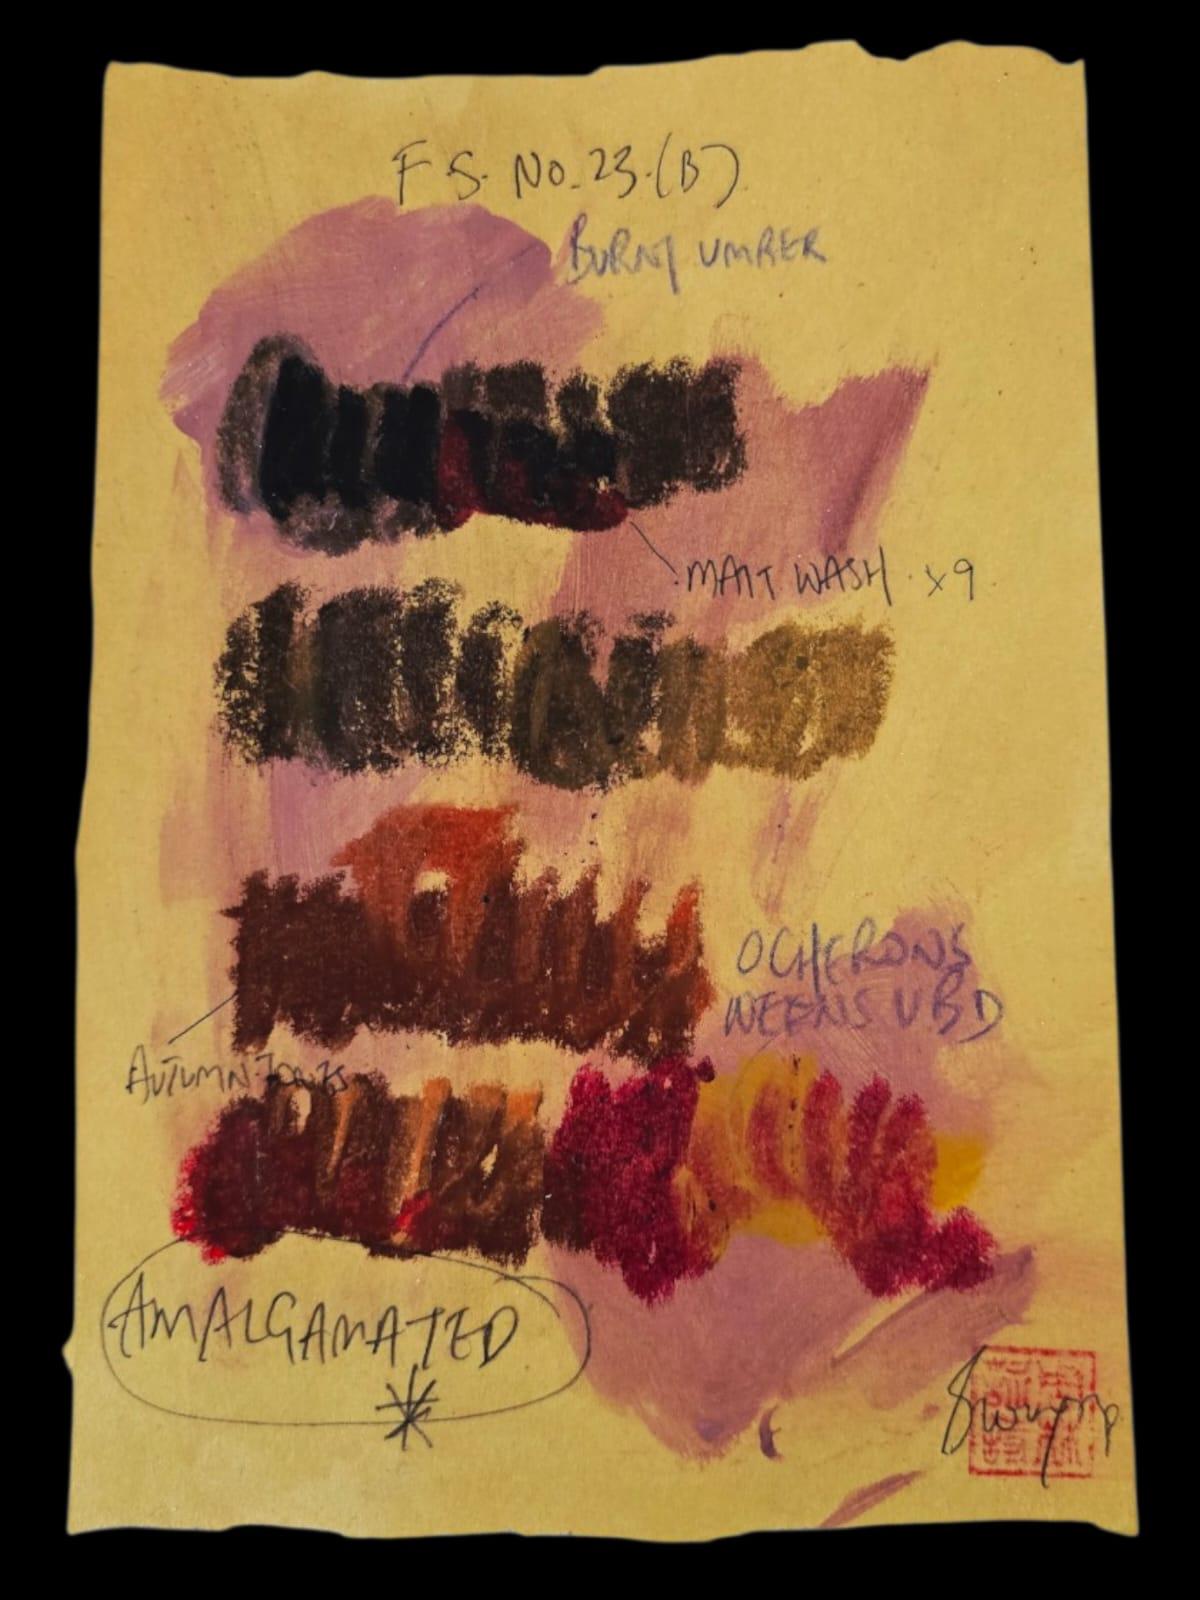 F.S. No. 23.(B)
BURNT UMBER
MATT WASH x9
OCHERONS
AUTUMN-TONES
AMALGAMATED